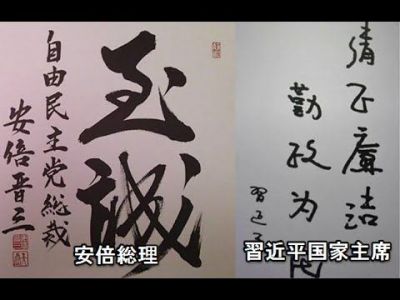 至誠
自由民主党総裁
安倍晋三
安倍総理
清正廉洁
勤政为民
習近平国家主席